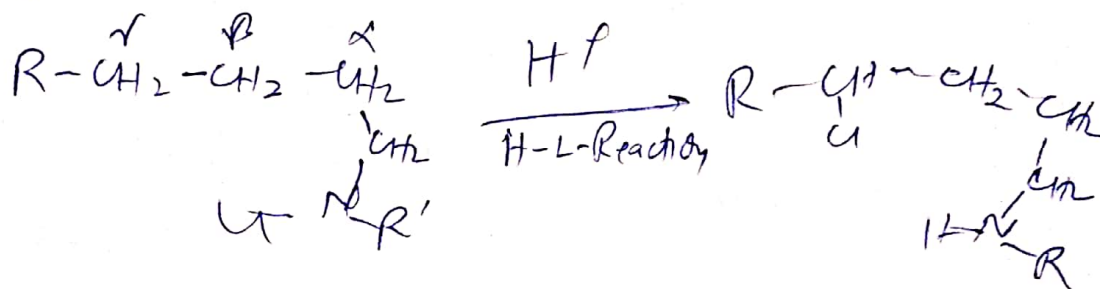 γ β α
R-CH2-CH2-CH2
CH2
Cl-N-R'
H+
H-L-Reaction
R-CH-CH2-CH2
Cl
CH2
H-N-R